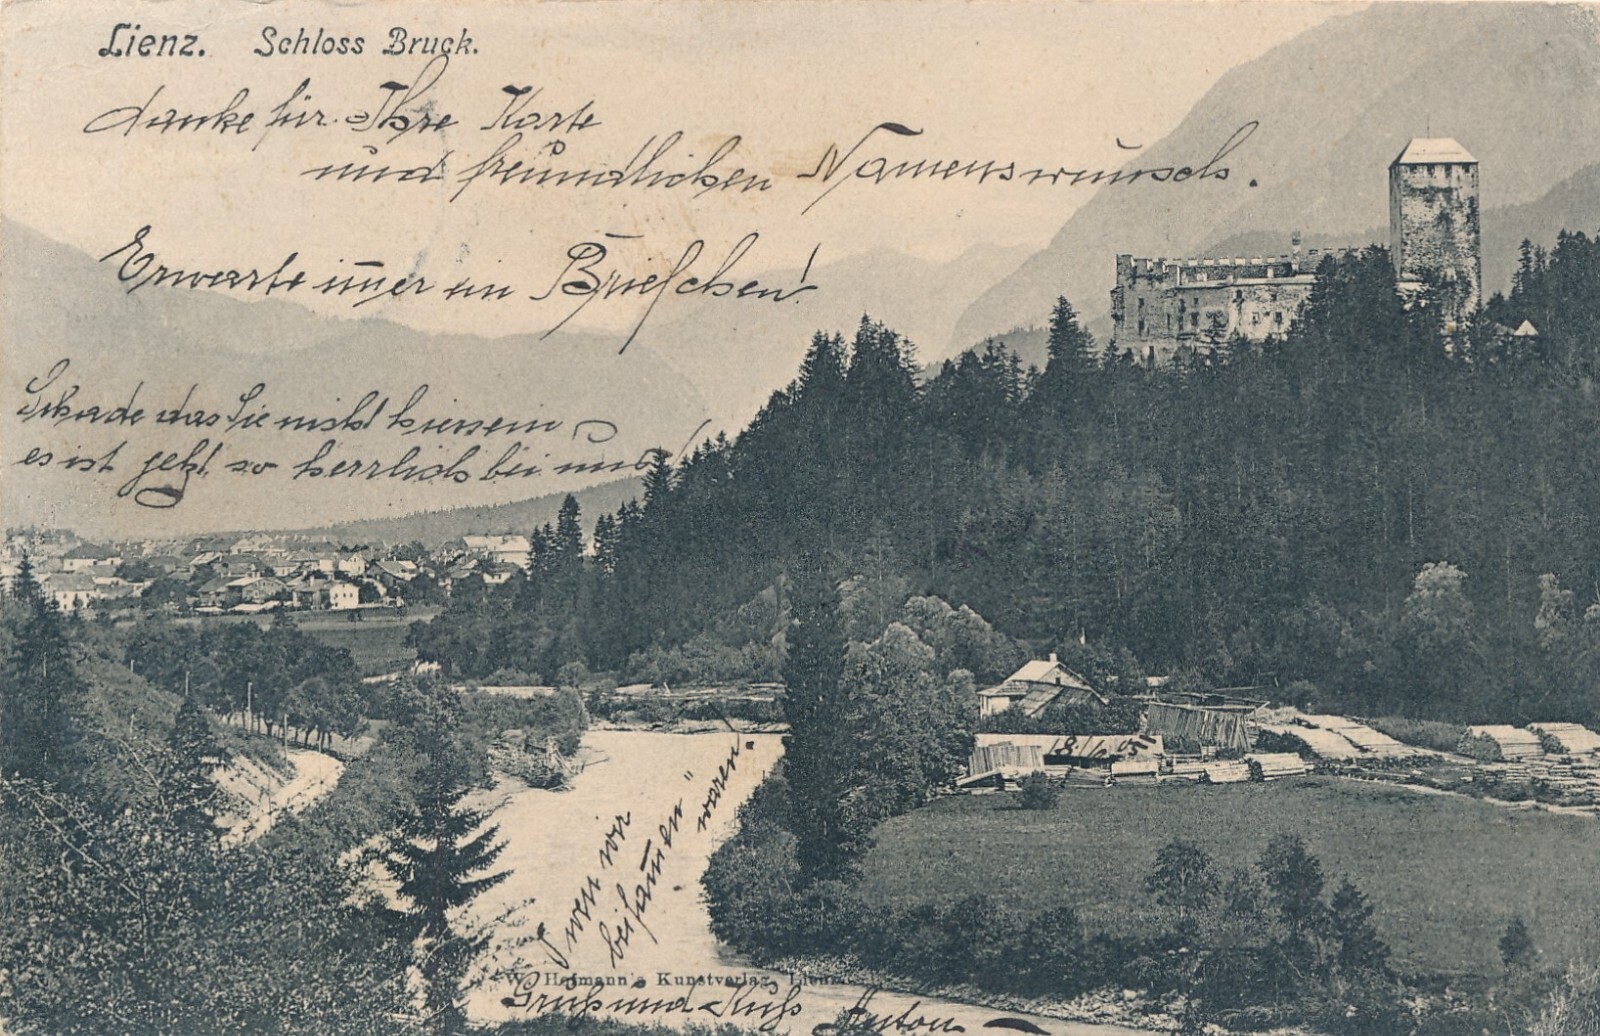 Lienz. Schloss Bruck.
danke für Ihre Karte
und freundlichen Namenswunsch.
Erwarte im̅er ein Briefchen!
Schade das Sie nicht hier sein
es ist jetzt so herrlich bei uns!
wen wir
beisam̅en"
waren.
18./6 05
W. Hofmann's Kunstverlag, Lienz.
Gruß und Kuß Anton